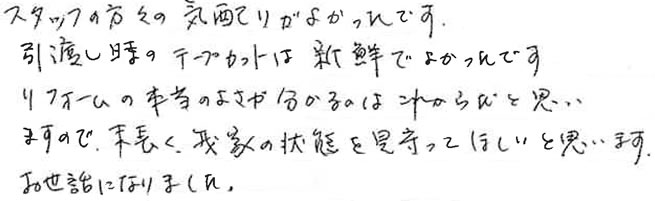 スタッフの方々の気配りがよかったです.
引渡し時のテープカットは新鮮でよかったです
リフォームの本当のよさが分かるのはこれからだと思い
ますので、末長く、我家の状態を見守ってほしいと思います.
お世話になりました。